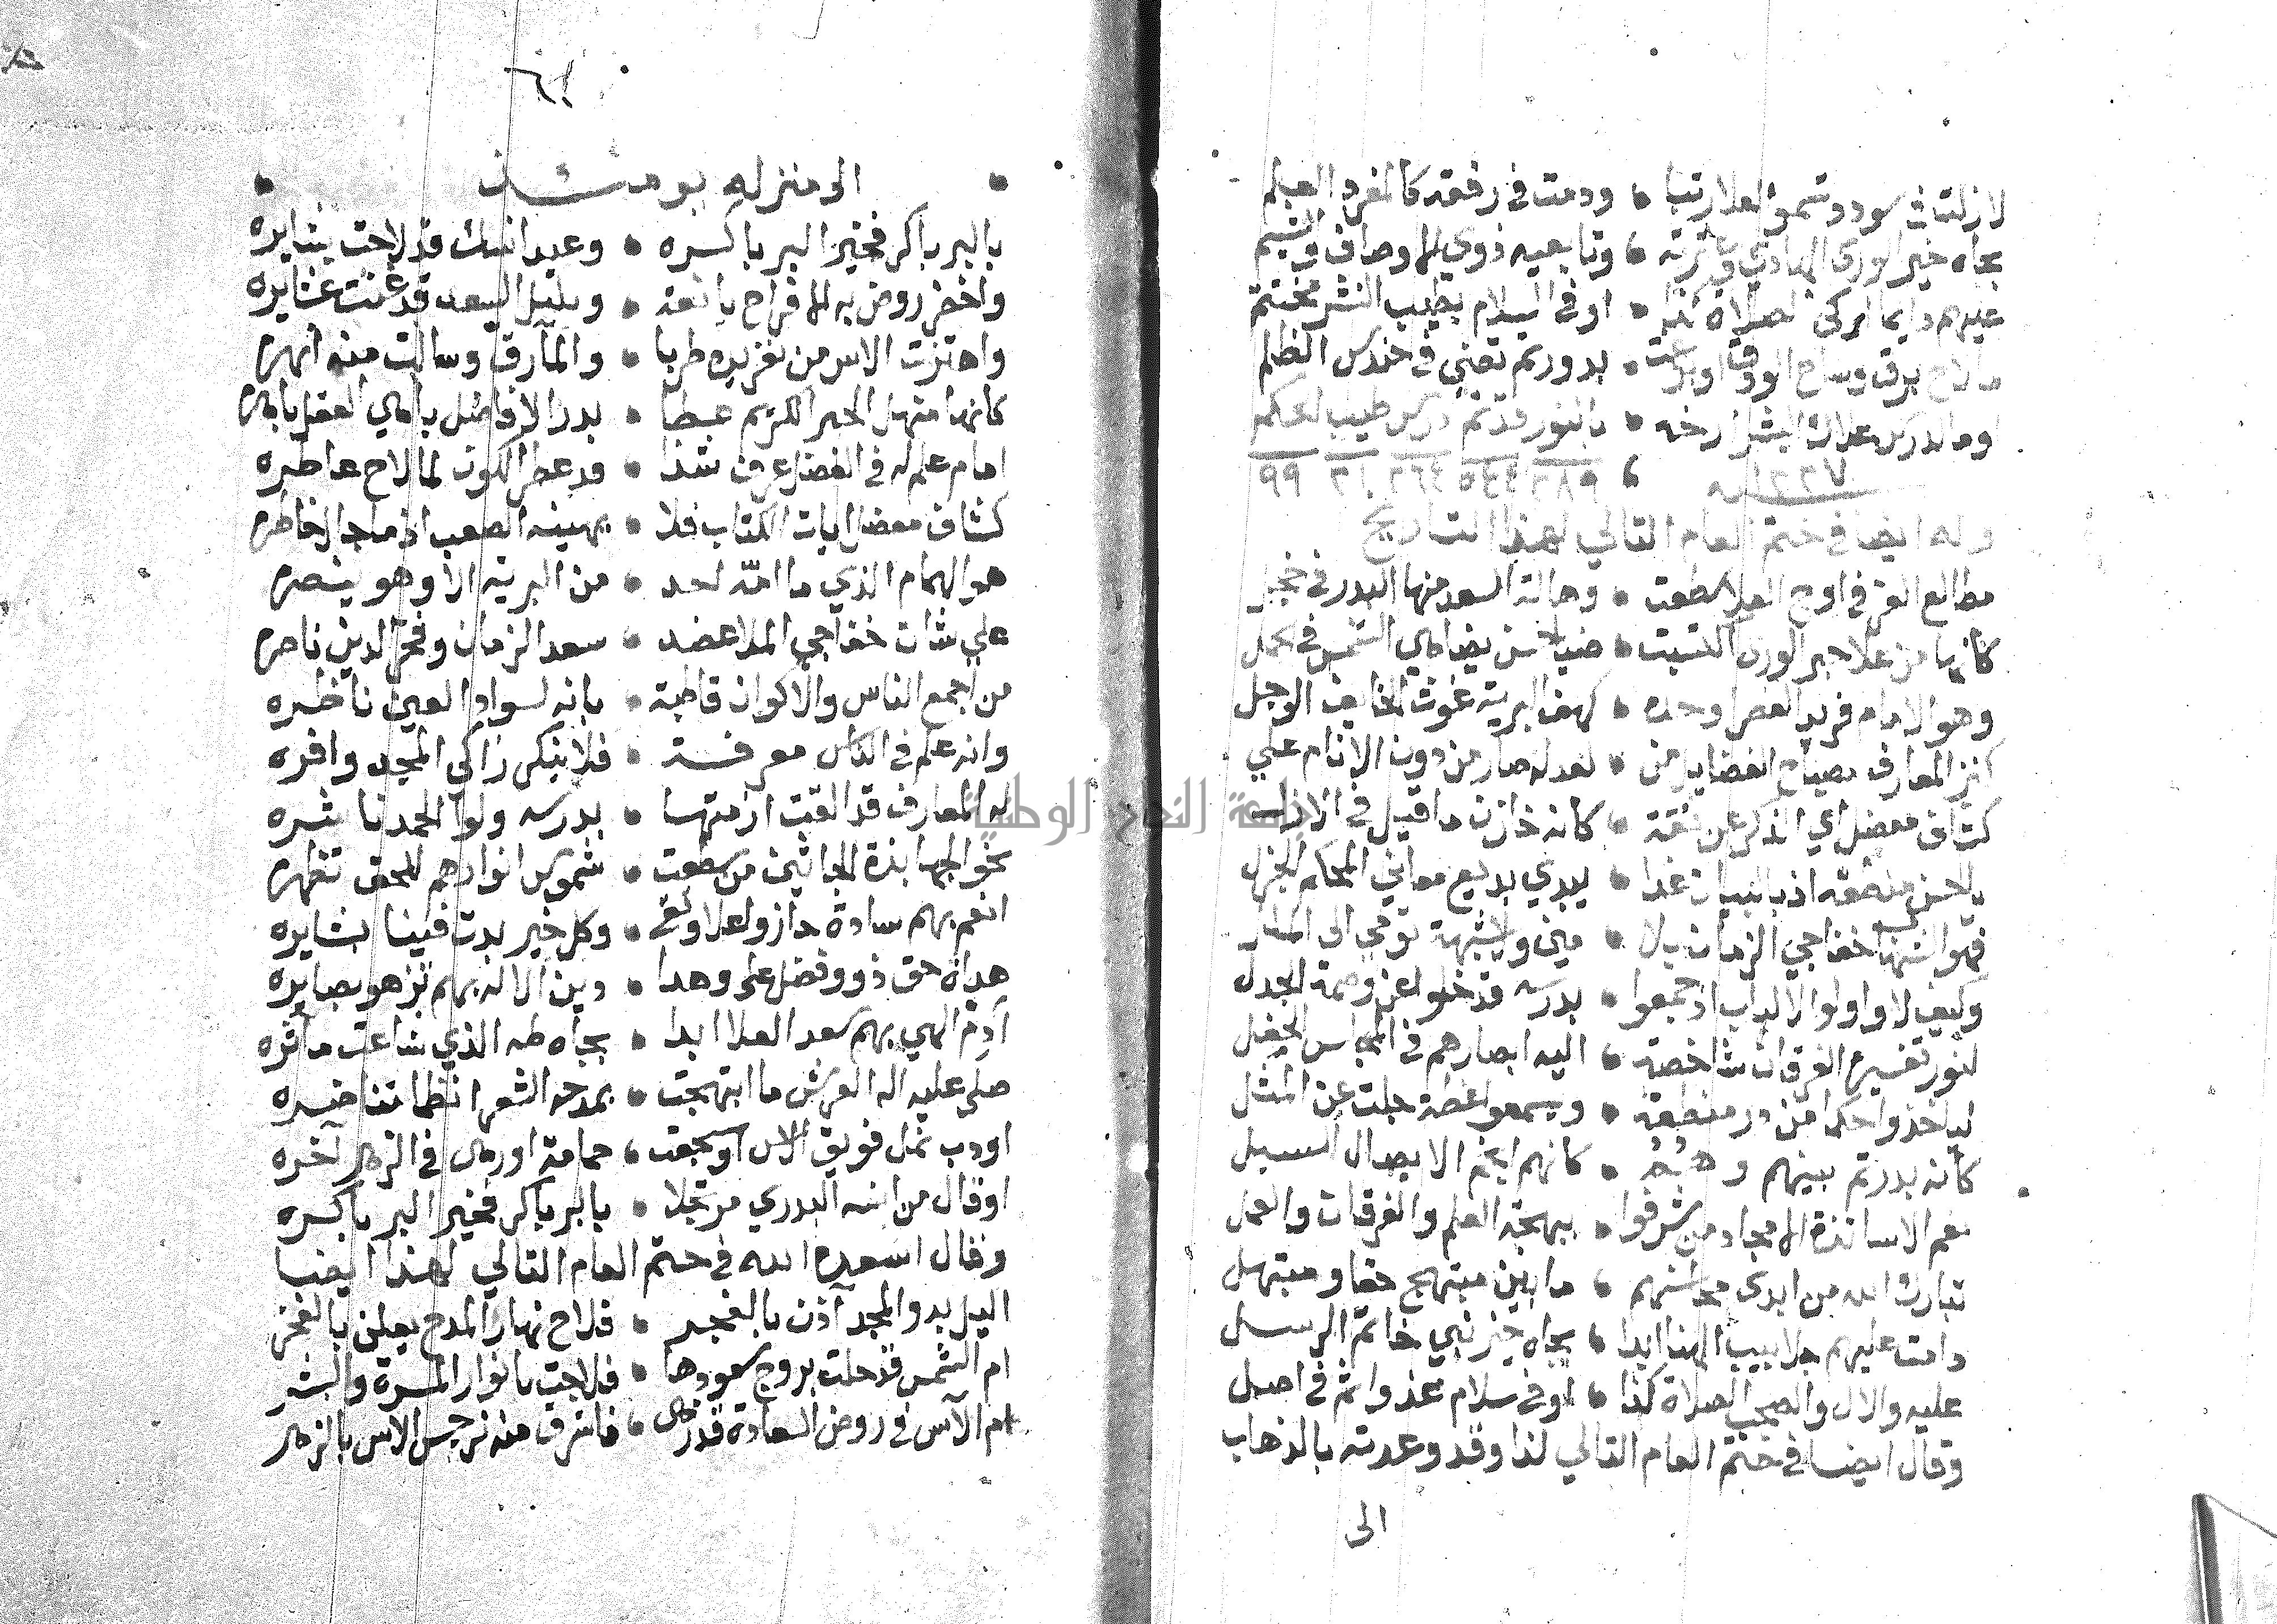 لازلت في سودد تسمو العلا رتبا • ودمت في رفعة كالمفرد العلم
بجاه خير الورى الهادي وعترته • وتابعيه ذوي الاوصاف والشيم
عليهم دايما ازكى الصلاة كذا • اوفى السلام بطيب النشر مختتم
ما لاح برق وساح الودق او بزغت • بدور تم تضئ في حندس الظلم
اوما لدرس علاك البشر ارخه • بالنور قد تم درس طيب الحكم
١٢٢٧ سنه • ٢٨٩ ٤٤٥ ٢٦٤ ٢١ ٩٩
وله ايضا في ختم العام التالي لهذا التاريخ
مطالع العز في اوج العلا سطعت • وهالة السعد منها البدر في خجل
كانها من علا حبر الورى اكتسبت • ضياء حسن يضاهي الشمس في الحمل
وهو الامام فريد العصر اوحده • كهف البرية غوث الخايف الوجل
كنز المعارف مصباح الفضايل من • لعدله صار من دون الانام علي
كشاف معضل اي الذكر عن ثقة • كانه خازن ما قيل في الازل
بالحسن منطقه اذ بالبيان غدا • يبدي بديع معاني المحكم الجزل
فهو الشهاب خفاجي الزمان بلا • مين ولا شبهة تومي الى الخلل
وكيف لا واولوا الالباب اذ جمعوا • بدرسه قد خلوا عن وصمة الجدل
لنور تفسيره الفرقان شاخصة • اليه ابصارهم في المجلس الحفل
لياخذوا حكما من در منطقه • ويسمعوا عظة جلت عن المثل
كانه بدر تم بينهم وهم • كانهم انجم الايصال للسبل
نعم الاساتذة الامجاد من شرفوا • ببهجة العلم والفرقان والعمل
تبارك الله من ابدى محاسنهم • ما بين مبتهج حقا ومبتهل
دامت عليهم جلابيب الهنا ابدا • بجاه خير نبي خاتم الرسل
عليه والال والصحب الصلاة كذا • اوفى سلام غدو اثم في اصل
وقال ايضا في ختم العام التالي لذا وقد وعدته بالذهاب
الى
٣١
• الى منزله بومشان •
بالبر باكر فخير البر باكره • وعيد انسك قد لاحت بشايره
واخضر روض به الافراح يانعة • وبلبل السعد قد غنت عشايره
واهتزت الاس من تغريده طربا • والماء رق وسالت منه انهره
كانها منهل الحبر الكريم عطا • بدر الافاضل باهي العقل باهره
امام علم له في الفضل عرف شذا • قد عطر الكون لما لاح عاطره
كشاف معضل ايات الكتاب فلا • يهينه الصعب اذ ماجال خاطره
هو الهمام الذي ما امه احد • من البرية الا وهو ينصره
علي شان خفاجي الملا عضد • سعد الزمان وفخر الدين ناصره
من اجمع الناس والاكوان قاطبة • بانه لسواد العين ناظره
وانه علم في الناس معرفة • فلا ينكر زاكي المجد وافره
له المعارف قد القت ازمتها • بدرسه ولوا الحمد ناشره
نحو الجهابذة الباثين من سطعت • شموس انوارهم للحق تظهره
انعم بهم سادة حازوا علا وتقى • وكل خير بدت فينا بشايره
هداة حق ذوو فضل على وهدا • دين الاله بهم تزهو بصايره
آدم الهي بهم سعد العلا ابدا • بجاه طه الذي شاعت مآثره
صلى عليه اله العرش ما ابتهجت • بمدحه الشعرا نظما تفاخره
اودب نمل فويق الاس او سجعت • حمامة اورمى في الزهر آخره
اوقال من انسه البدري مرتجلا • بالبر باكر فخير البر باكره
وقال اسعده الله في ختم العام التالي لهذا ايضا
اليل بدو المجد آذن بالفجر • فلاح نهار المدح يعلن بالفخر
ام الشمس قد حلت بروج سعودها • فلاحت بانوار المسرة والبشر
ام الآس في روض السعادة قد زهى • فاشرق منه نرجس الاس بالزهر
جامعة النجاح الوطنية